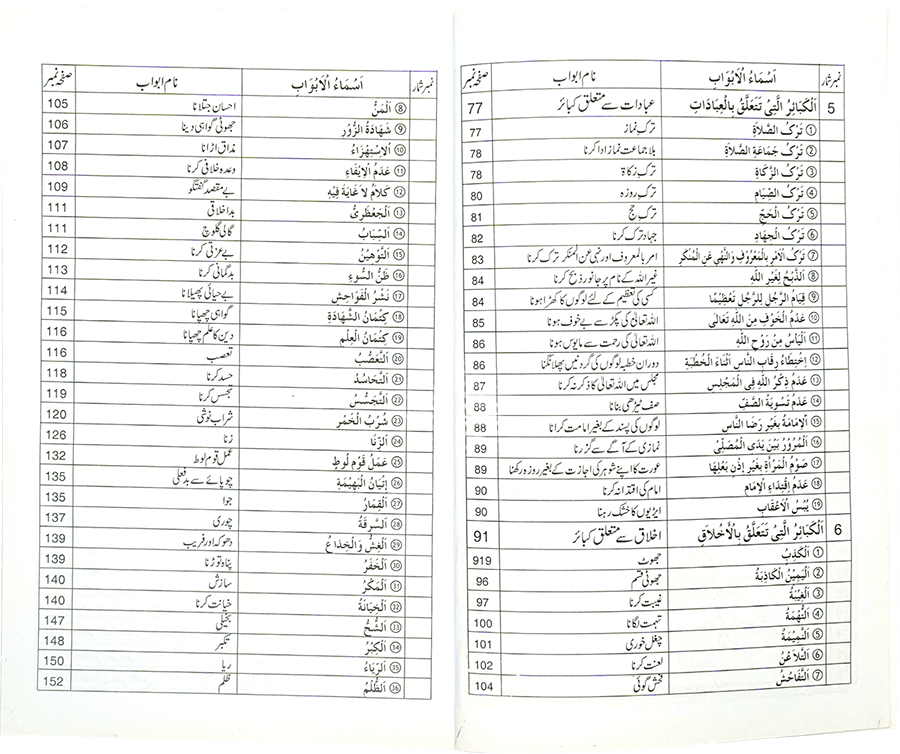 نمبر شمار اَسْمَاءُ الْاَبْوَابِ نام ابواب صفحہ نمبر
5 اَلْكَبَائِرُ الَّتِىْ تَتَعَلَّقُ بِالْعِبَادَاتِ عبادات سے متعلق کبائر 77
① تَرْكُ الصَّلَاةِ ترک نماز 77
② تَرْكُ جَمَاعَةِ الصَّلَاةِ بلا جماعت نماز ادا کرنا 78
③ تَرْكُ الزَّكَاةِ ترک زکاۃ 78
④ تَرْكُ الصِّيَامِ ترک روزہ 80
⑤ تَرْكُ الْحَجِّ ترک حج 81
⑥ تَرْكُ الْجِهَادِ جہاد ترک کرنا 82
⑦ تَرْكُ الْاَمْرِ بِالْمَعْرُوْفِ وَالنَّهْىِ عَنِ الْمُنْكَرِ امر بالمعروف اور نہی عن المنکر ترک کرنا 83
⑧ اَلذَّبْحُ لِغَيْرِ اللّٰهِ غیر اللہ کے نام پر جانور ذبح کرنا 84
⑨ قِيَامُ الرَّجُلِ لِلرَّجُلِ تَعْظِيْمًا کسی کی تعظیم کے لئے لوگوں کا کھڑا ہونا 84
⑩ عَدَمُ الْخَوْفِ مِنَ اللّٰهِ تَعَالٰى اللہ تعالیٰ کی پکڑ سے بے خوف ہونا 85
⑪ اَلْيَاْسُ مِنْ رَوْحِ اللّٰهِ اللہ تعالیٰ کی رحمت سے مایوس ہونا 86
⑫ اِخْتِطَاءُ رِقَابِ النَّاسِ اَثْنَاءَ الْخُطْبَةِ دوران خطبہ لوگوں کی گردنیں پھلانگنا 86
⑬ عَدَمُ ذِكْرِ اللّٰهِ فِى الْمَجْلِسِ مجلس میں اللہ تعالیٰ کا ذکر نہ کرنا 87
⑭ عَدَمُ تَسْوِيَةِ الصَّفِّ صف ٹیڑھی بنانا 88
⑮ اَلْاِمَامَةُ بِغَيْرِ رَضَا النَّاسِ لوگوں کی پسند کے بغیر امامت کرانا 88
⑯ اَلْمُرُوْرُ بَيْنَ يَدَىِ الْمُصَلِّىْ نمازی کے آگے سے گزرنا 89
⑰ صَوْمُ الْمَرْاَةِ بِغَيْرِ اِذْنِ بَعْلِهَا عورت کا اپنے شوہر کی اجازت کے بغیر روزہ رکھنا 89
⑱ عَدَمُ اِقْتِدَاءِ الْاِمَامِ امام کی اقتدا نہ کرنا 90
⑲ يُبْسُ الْاَعْقَابِ ایڑیوں کا خشک رہنا 90
6 اَلْكَبَائِرُ الَّتِىْ تَتَعَلَّقُ بِالْاَخْلَاقِ اخلاق سے متعلق کبائر 91
① اَلْكَذِبُ جھوٹ 919
② اَلْيَمِيْنُ الْكَاذِبَةُ جھوٹی قسم 96
③ اَلْغِيْبَةُ غیبت کرنا 97
④ اَلتُّهْمَةُ تہمت لگانا 100
⑤ اَلنَّمِيْمَةُ چغل خوری 101
⑥ اَلتَّلَاعُنُ لعنت کرنا 102
⑦ اَلتَّفَاحُشُ فحش گوئی 104
نمبر شمار اَسْمَاءُ الْاَبْوَابِ نام ابواب صفحہ نمبر
⑧ اَلْمَنُّ احسان جتلانا 105
⑨ شَهَادَةُ الزُّوْرِ جھوٹی گواہی دینا 106
⑩ اَلْاِسْتِهْزَاءُ مذاق اڑانا 107
⑪ عَدَمُ الْاِيْفَاءِ وعدہ خلافی کرنا 108
⑫ كَلَامٌ لَا غَايَةَ فِيْهِ بے مقصد گفتگو 109
⑬ اَلْجَعْظَرِىُّ بداخلاقی 111
⑭ اَلسِّبَابُ گالی گلوچ 111
⑮ اَلتَّوْهِيْنُ بے عزتی کرنا 112
⑯ ظَنُّ السُّوْءِ بدگمانی کرنا 113
⑰ نَشْرُ الْفَوَاحِشِ بے حیائی پھیلانا 114
⑱ كِتْمَانُ الشَّهَادَةِ گواہی چھپانا 115
⑲ كِتْمَانُ الْعِلْمِ دین کا علم چھپانا 116
⑳ اَلتَّعَصُّبُ تعصب 116
㉑ اَلتَّحَاسُدُ حسد کرنا 118
㉒ اَلتَّجَسُّسُ تجسس کرنا 119
㉓ شُرْبُ الْخَمْرِ شراب نوشی 120
㉔ اَلزِّنَا زنا 126
㉕ عَمَلُ قَوْمِ لُوْطٍ عمل قوم لوط 132
㉖ اِتْيَانُ الْبَهِيْمَةِ چوپائے سے بدفعلی 135
㉗ اَلْقِمَارُ جوا 135
㉘ اَلسَّرِقَةُ چوری 137
㉙ اَلْغِشُّ وَالْخِدَاعُ دھوکہ اور فریب 139
㉚ اَلْخَفَرُ پناہ توڑنا 139
㉛ اَلْمَكْرُ سازش 140
㉜ اَلْخِيَانَةُ خیانت کرنا 140
㉝ اَلشُّحُّ بخیلی 147
㉞ اَلْكِبْرُ تکبر 148
㉟ اَلرِّيَاءُ ریا 150
㊱ اَلظُّلْمُ ظلم 152